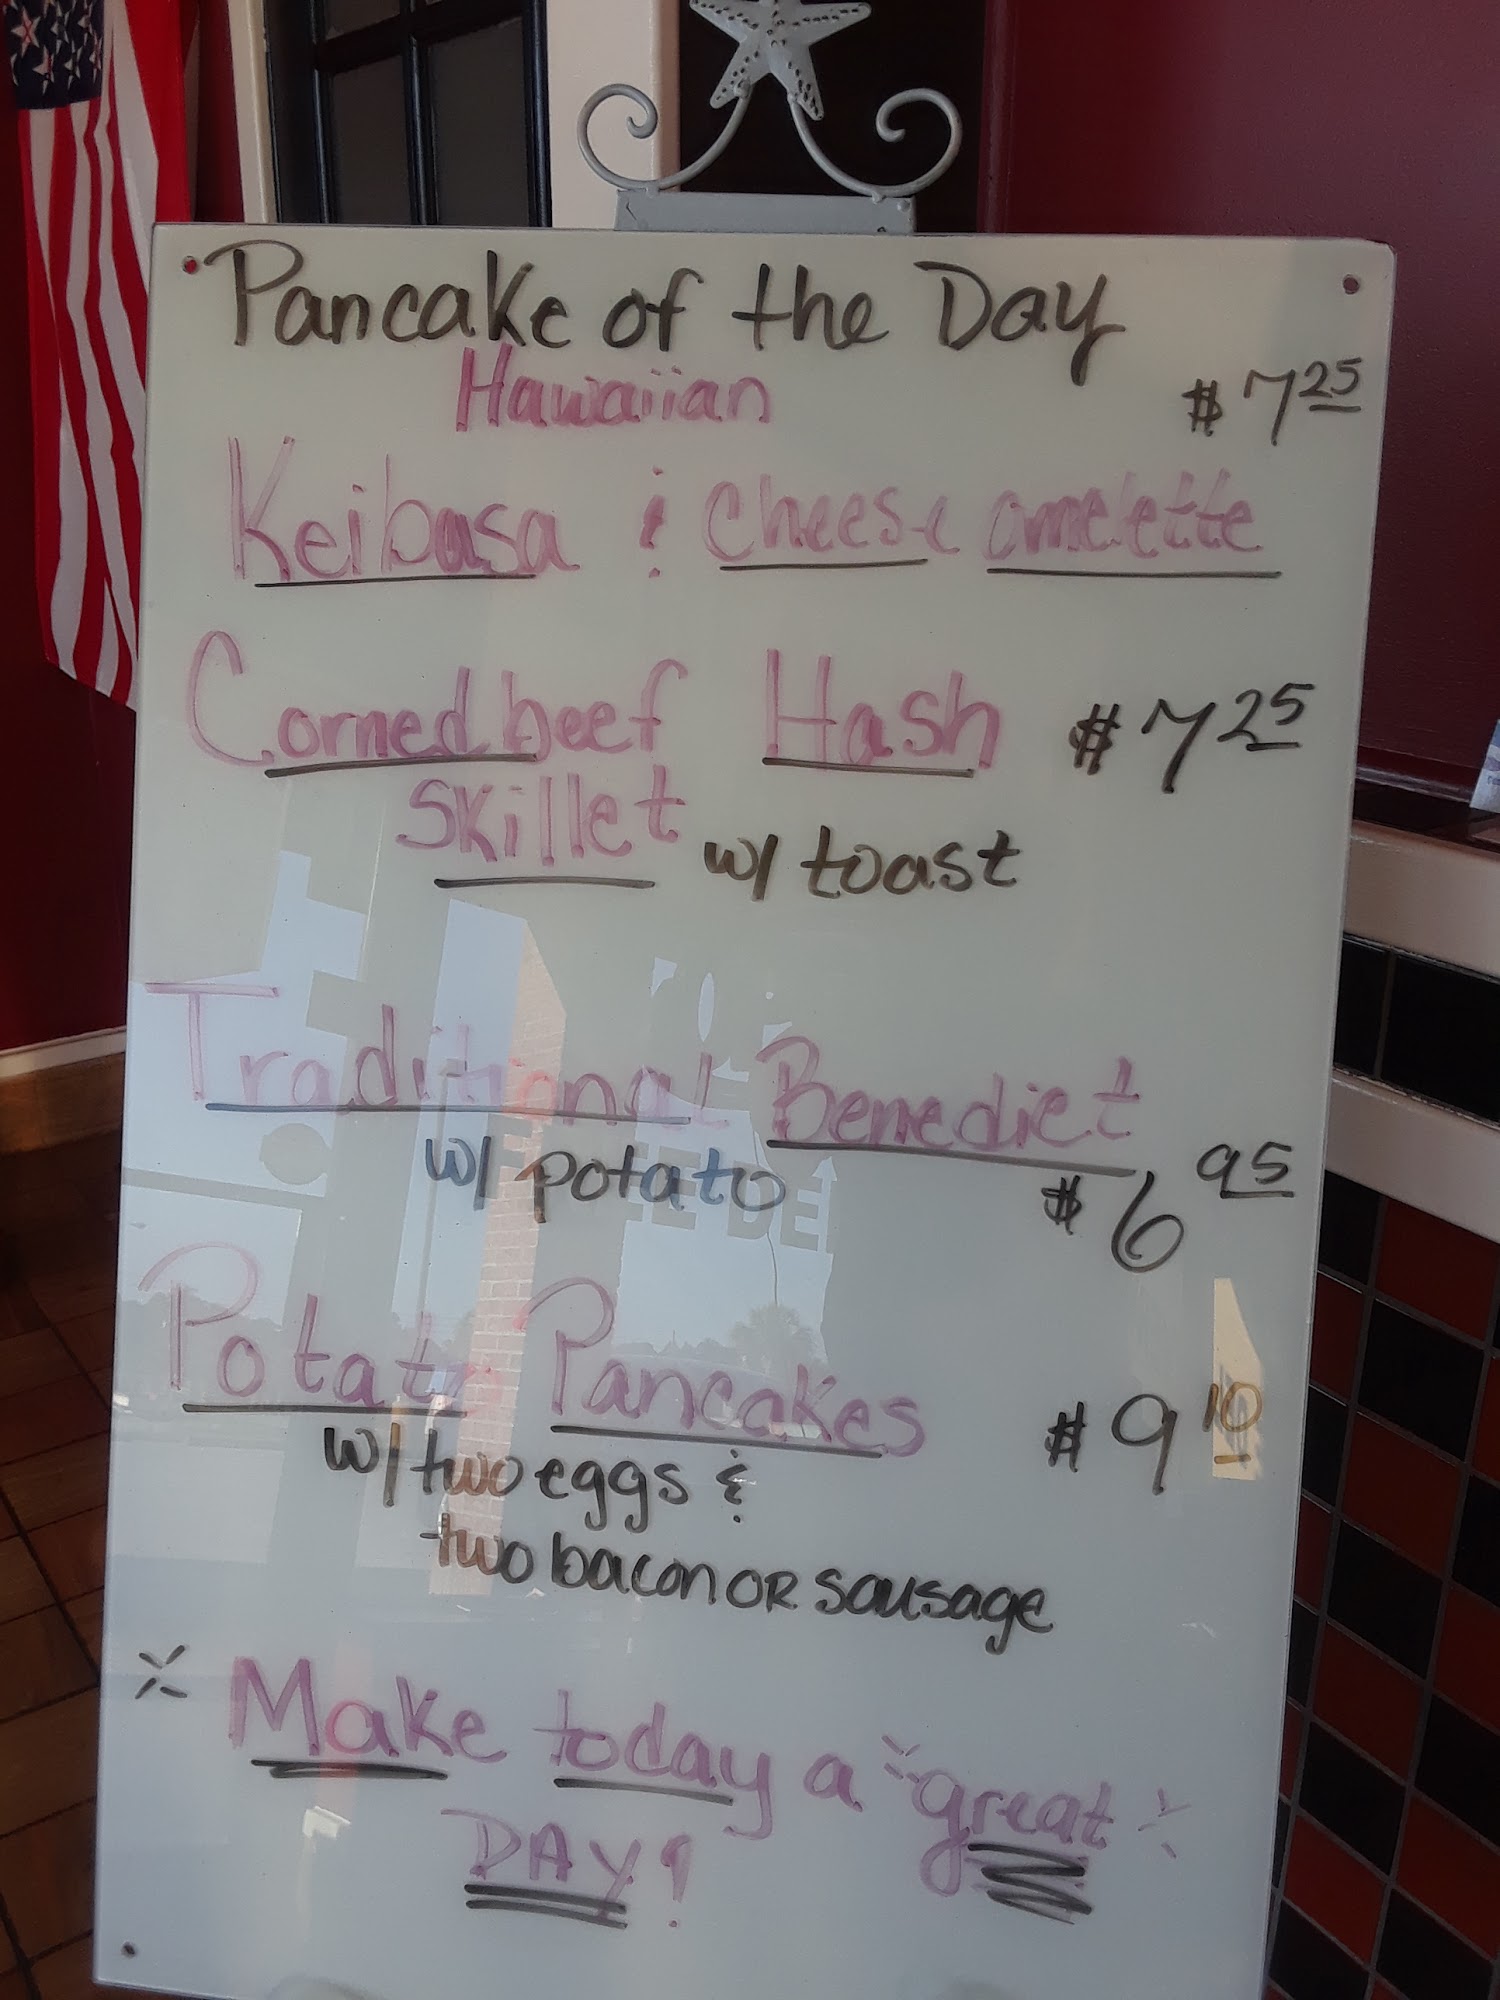 Pancake of the Day
Hawaiian $7 25
Keibasa & Cheese omelette
Corned beef Hash $7 25
skillet w/ toast
Traditional Benedict
w/ potato $6 95
Potato Pancakes $9 10
w/ two eggs &
two bacon OR sausage
Make today a great
DAY!